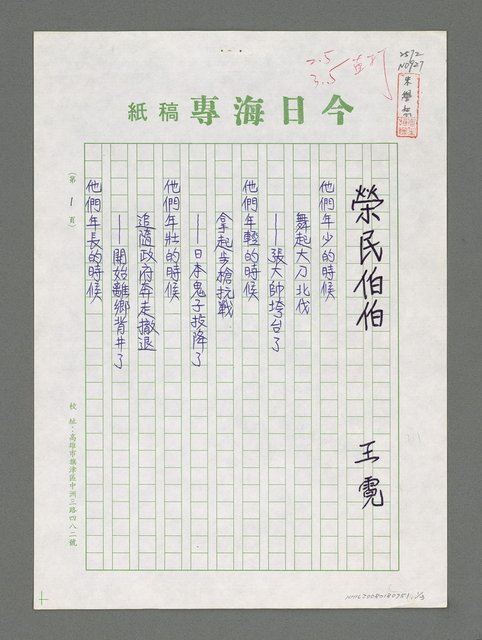 2572
N0927
2.5
3.5
今日海專稿紙
榮民伯伯
王霓
他們年少的時候
舞起大刀北伐
——張大帥垮台了
他們年輕的時候
拿起步槍抗戰
——日本鬼子投降了
他們年壯的時候
追隨政府奔走撤退
——開始離鄉背井了
他們年長的時候
(第 1 頁)
校址:高雄市旗津區中洲三路四八二號